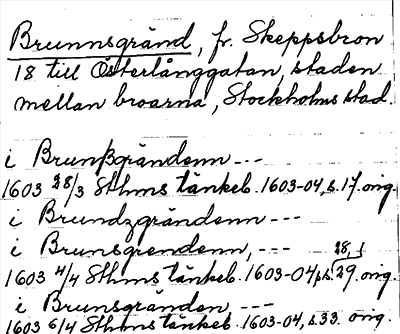 Brunnsgränd, fr. Skeppsbron
18 till Österlånggatan, staden
mellan broarna, Stockholms stad.
i Brunßgrändenn ---
1603 28/3 Sthms tänkeb. 1603-04, s. 17. orig.
i Brundzgrändenn ---
i Brunsgrendenn, ---
1603 4/4 Sthms tänkeb. 1603-04, s. 29. orig.
i Brunsgränden ---
1603 6/4 Sthms tänkeb. 1603-04, s. 33. orig.